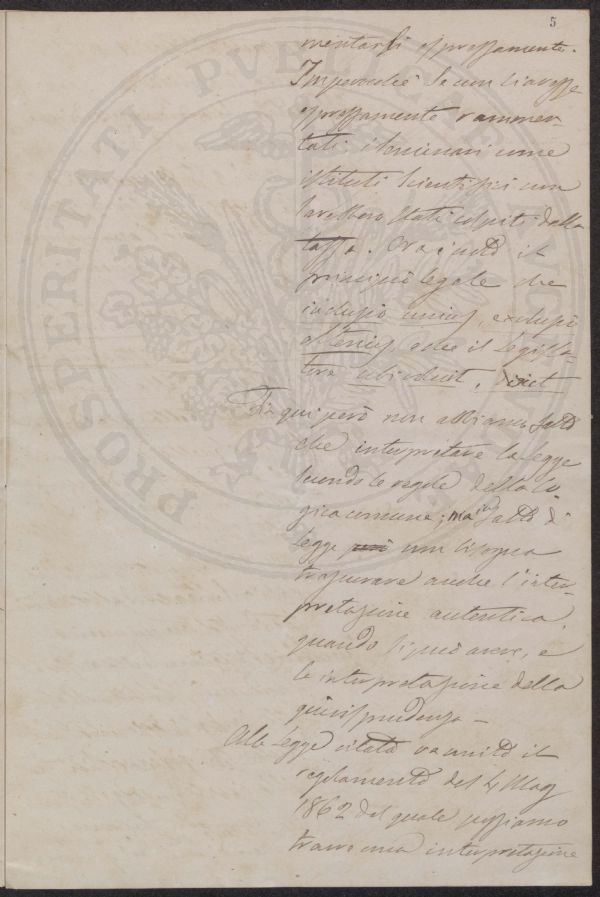 5
mentarsi espressamente.
Imperocchè se non si avesse
espressamente rammen-
tati i Seminari come
istituti scientifici non
sarebbero stati colpiti dalla
tassa. Ora è noto il
principio legale che
inclusio unius, exclusio
alterius, e che il Legisla-
tore ubi voluit, dixit
Fin qui però non abbiamo fatto
che interpretare la legge
secondo le regole della lo
gica comune; ma in fatto di
legge però non bisogna
trascurare anche l'inter-
pretazione autentica,
quando si può avere, e
la interpretazione della
giurisprudenza –
Alla legge citata va unito il
regolamento del 4 Mag
1862 del quale possiamo
trarre una interpretazione
PROSPERITATI PVBLICAE AVGENDAE